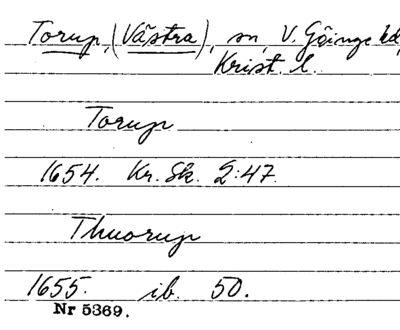 Torup, (Västra), sn, V. Göinge hd,
Krist. l.
Torup
1654. Kr. Sk. 2:47.
Thuorup
1655. ib. 50.
Nr 5369.